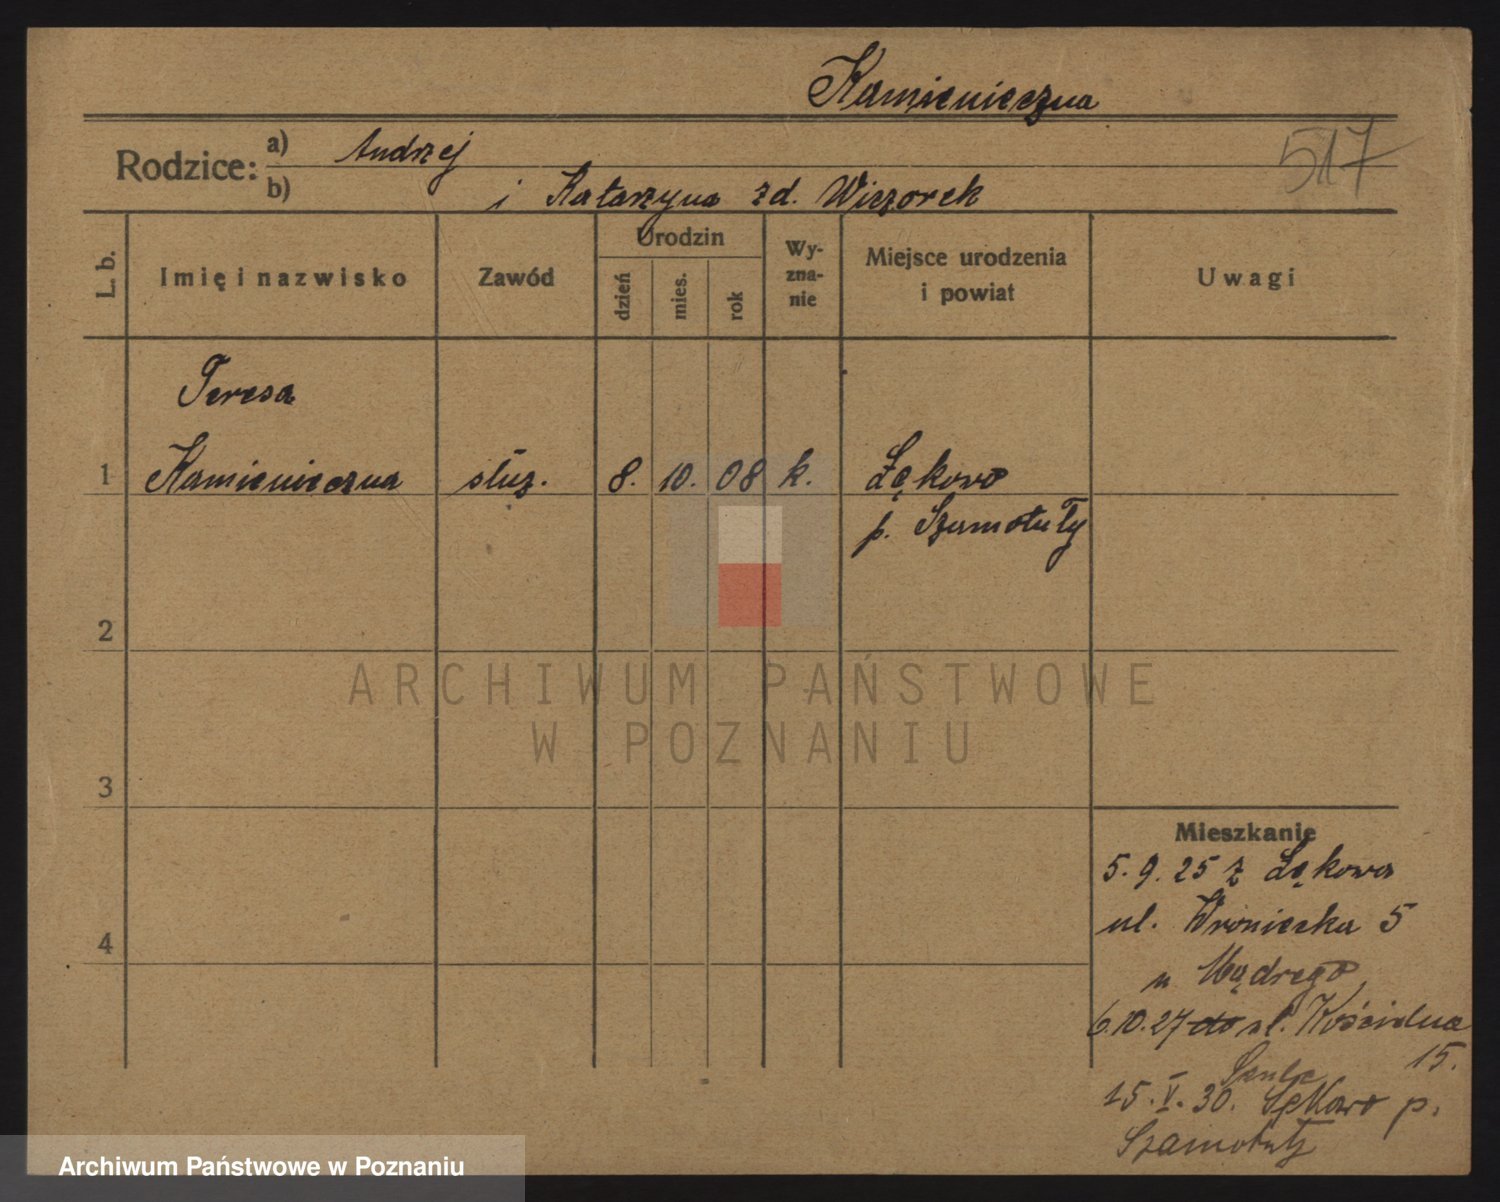 Kamienieczna
517
Rodzice:
a) Andrzej
b) i Katarzyna zd. Wieczorek
L. b.
Imię i nazwisko
Zawód
Urodzin
dzień
mies.
rok
Wy-
zna-
nie
Miejsce urodzenia
i powiat
Uwagi
Teresa
1 Kamienieczna służ. 8. 10. 08 k. Lękowo
p. Szamotuły
2
3
4
Mieszkanie
5.9.25 z Lękowa
ul. Wroniecka 5
u Mądrego
6.10.27 do ul. Kościelna
15.
Szulc
15.V.30. Lękowo p.
Szamotuły
ARCHIWUM PAŃSTWOWE
W POZNANIU
Archiwum Państwowe w Poznaniu